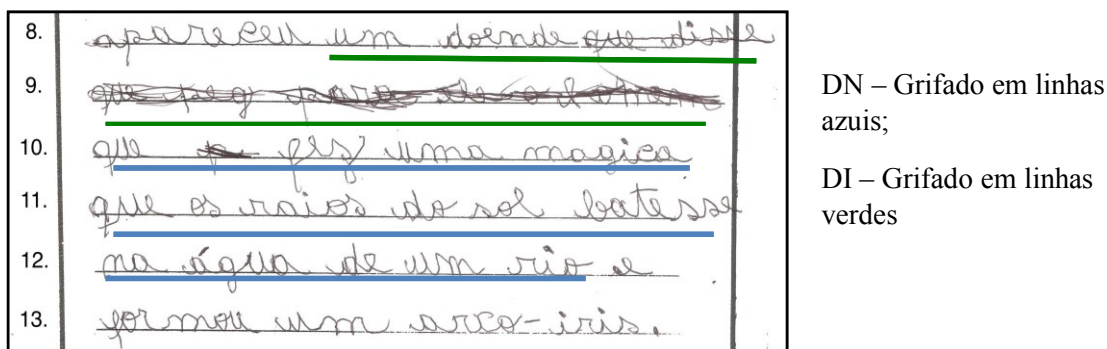 8. apareceu um doende que disse
9. que peg para
10. que fez uma magica
11. que os raios do sol batesse
12. na água de um rio e
13. formou um arco-iris.
DN – Grifado em linhas
azuis;
DI – Grifado em linhas
verdes